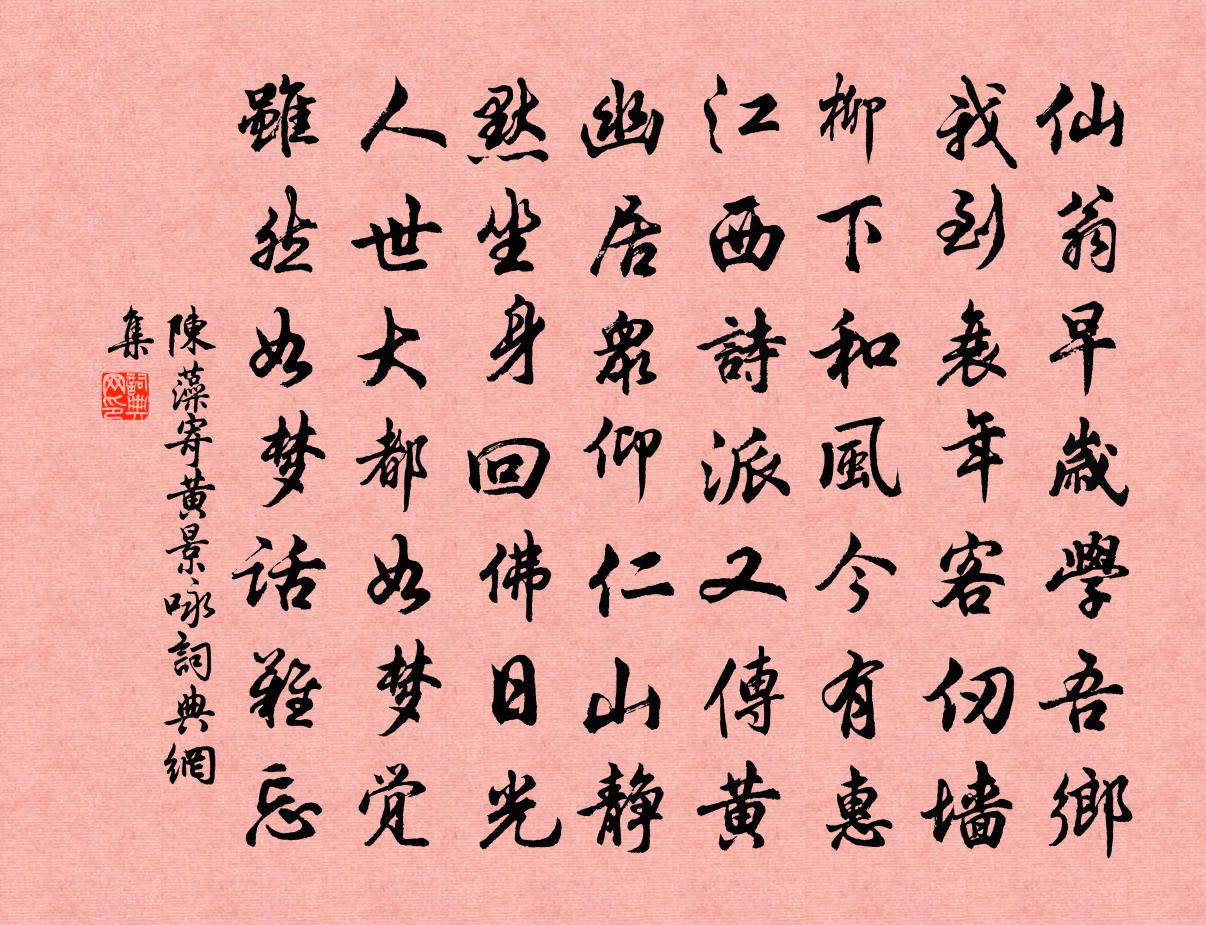 仙翁早歲學吾鄉
我到衰年客仞墻
柳下和風今有惠
江西詩派又傳黃
幽居眾仰仁山靜
默坐身回佛日光
人世大都如梦覺
雖然如梦話難忘
陳藻寄黃景咏詞典網
集
詞典網印